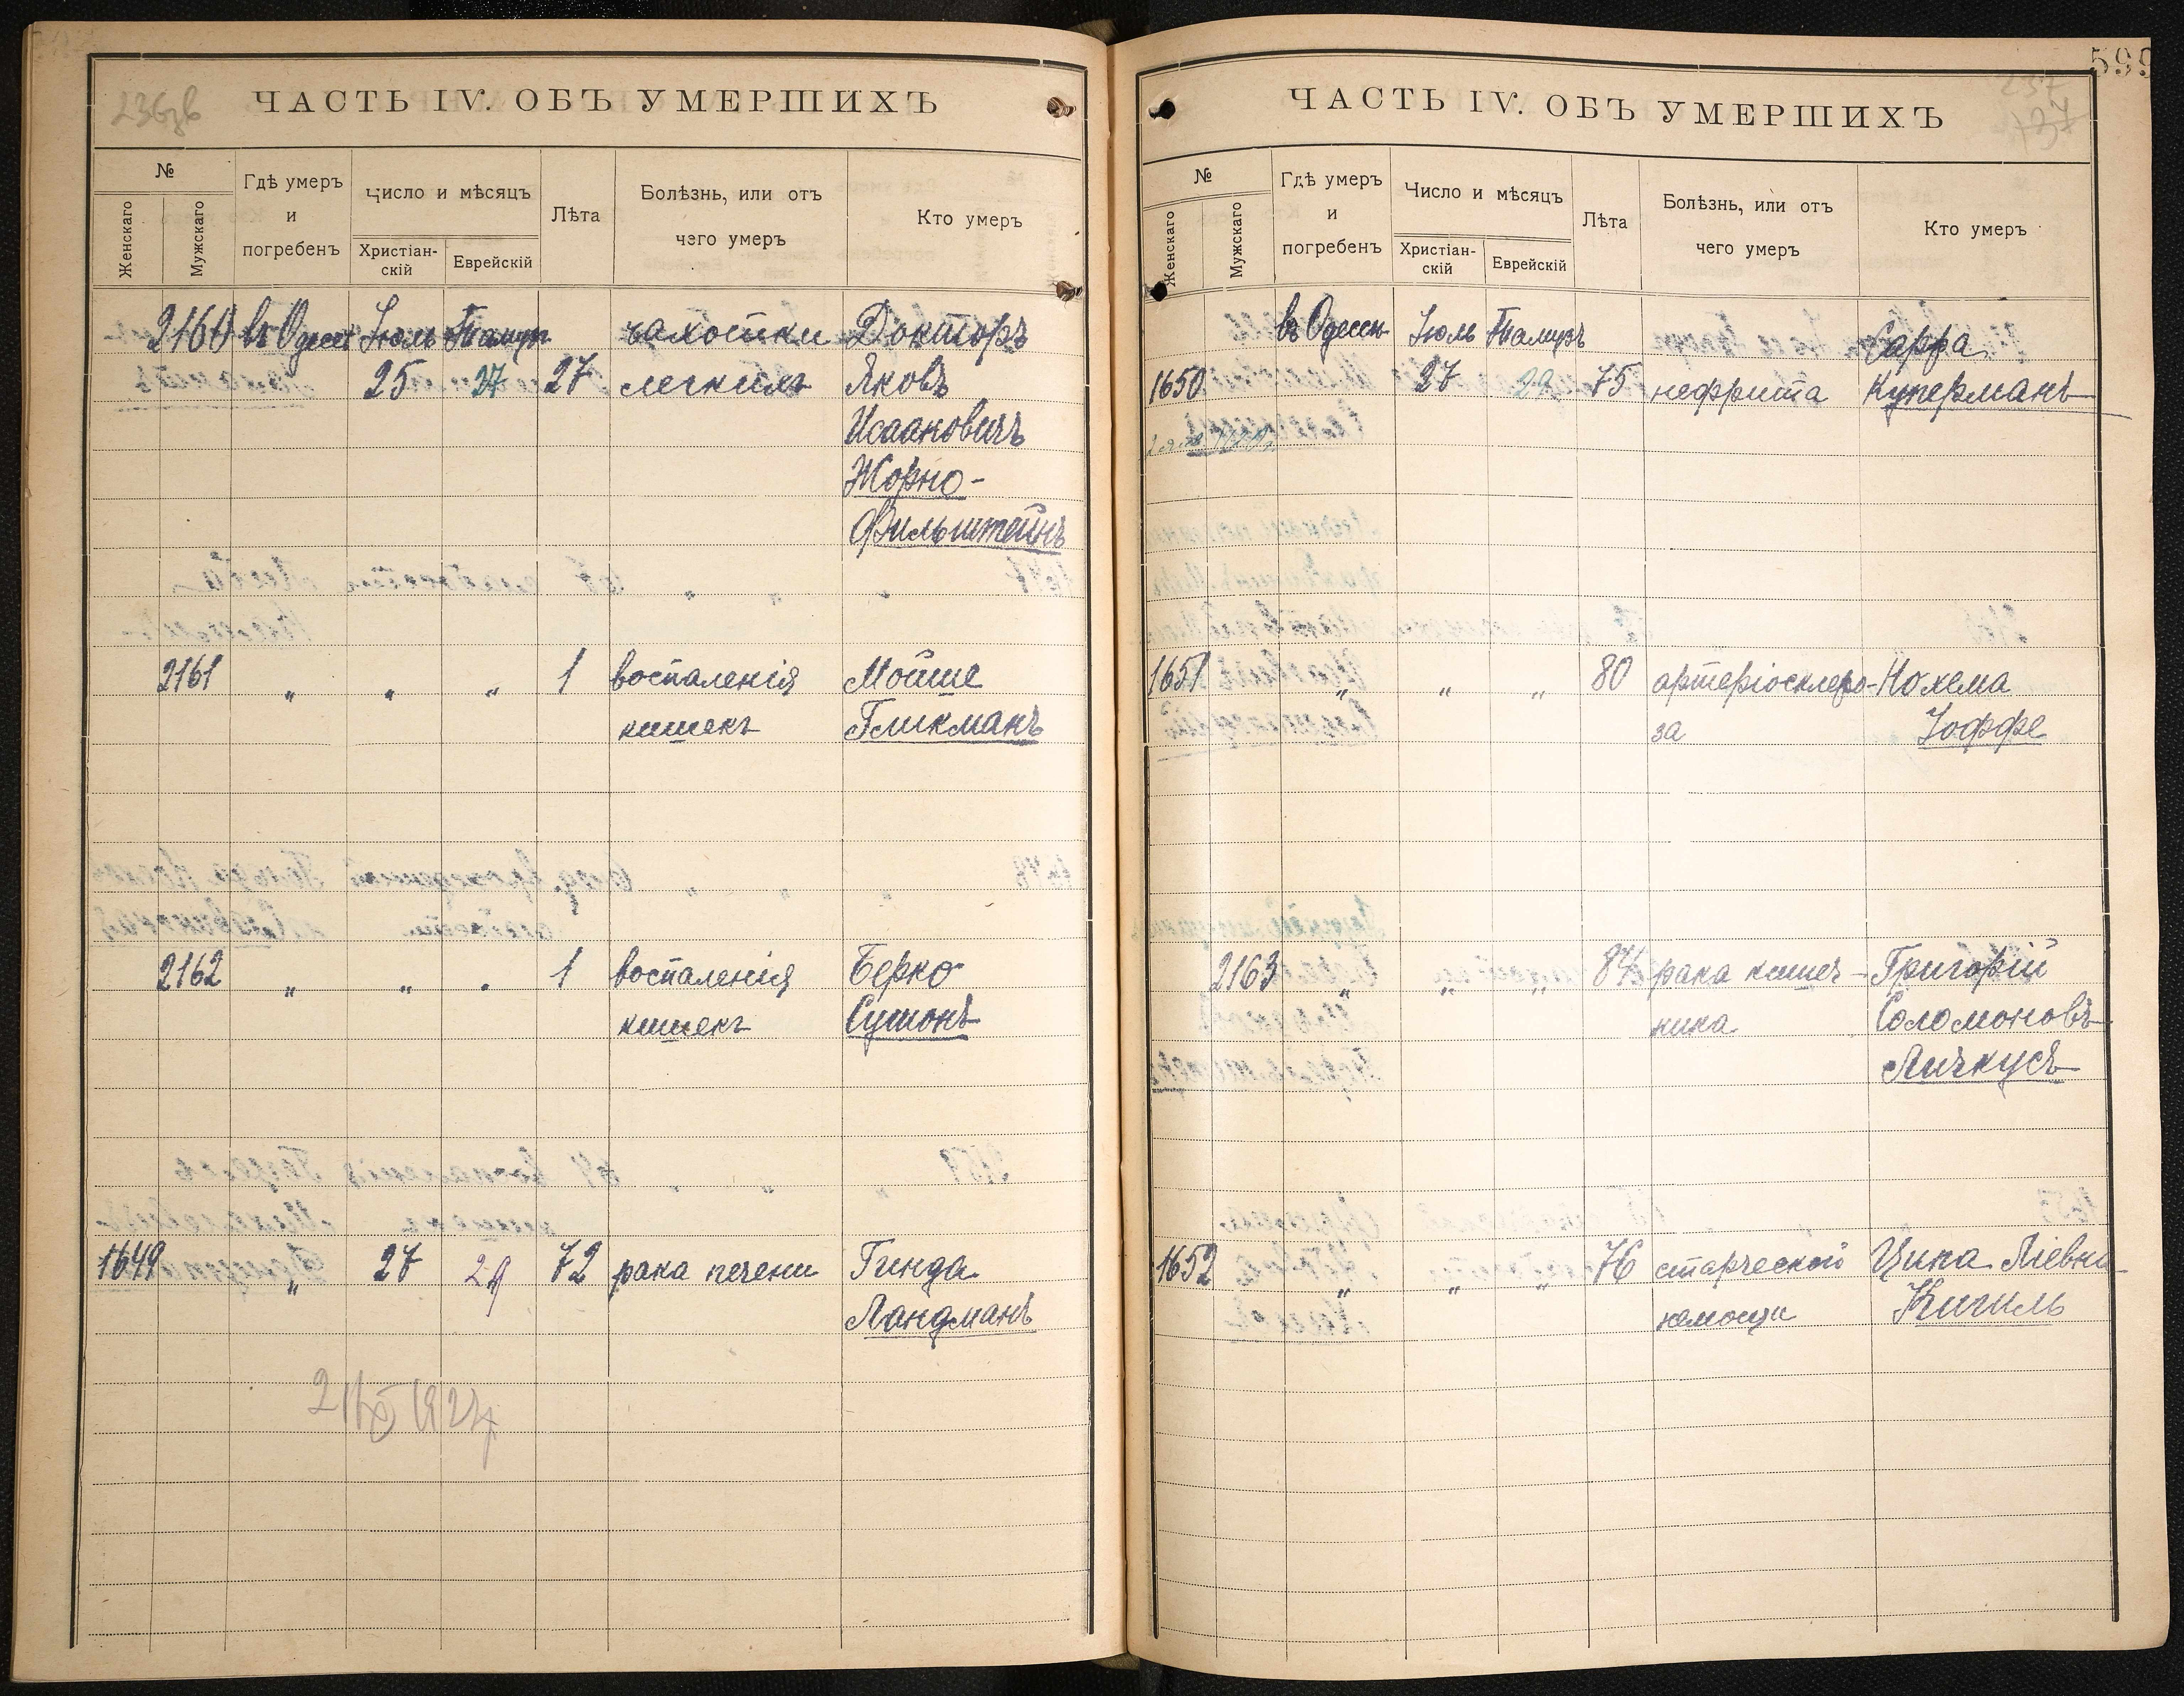 ЧАСТЬ IV. ОБЪ УМЕРШИХЪ
№
Женскаго
Мужскаго
Гдѣ умеръ
и
погребенъ
Число и мѣсяцъ
Христіан-
скій
Еврейскій
Лѣта
Болѣзнь, или отъ
чего умеръ
Кто умеръ
2160 въ Одессѣ Іюль Тамузъ чахотки Докторъ
25 27 27 легкихъ Яковъ
Исааковичъ
Жорно-
Фильштейнъ
2161 „ „ „ 1 воспаленія Мойше
кишекъ Гликманъ
2162 „ „ „ 1 воспаленія Берко
кишекъ Сушонъ
1649 „ 27 29 72 рака печени Гинда
Ландманъ
599
237
ЧАСТЬ IV. ОБЪ УМЕРШИХЪ
№
Женскаго
Мужскаго
Гдѣ умеръ
и
погребенъ
Число и мѣсяцъ
Христіан-
скій
Еврейскій
Лѣта
Болѣзнь, или отъ
чего умеръ
Кто умеръ
въ Одессѣ Іюль Тамузъ Сарра
1650 27 29 75 нефрита Куперманъ
1651 „ „ „ 80 артеріосклеро- Нохема
за Іоффе
2163 „ „ „ 84 рака кишеч- Григорій
ника Соломоновъ
Личкусъ
1652 „ „ „ 76 старческой Цика Ліевна
немощи Кигиль